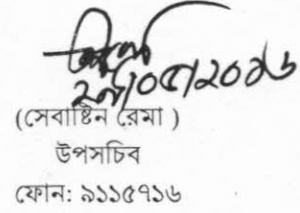 ২৯/০৫/২০১৬
(সেবাষ্টিন রেমা )
উপসচিব
ফোন: ৯১১৫৭১৬